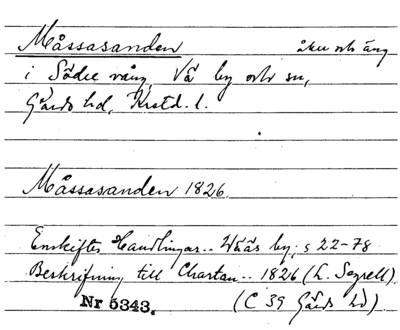 Måssasanden åker och äng
i Södre vång, Vä by och sn,
Gärds hd, Krstd. l.
Måssasanden 1826.
Enskiftes Handlingar.. Wääs by; s 22-78
Beskrifning till Chartan.. 1826 (L. Segrell).
Nr 5343. (C 39 Gärds hd)